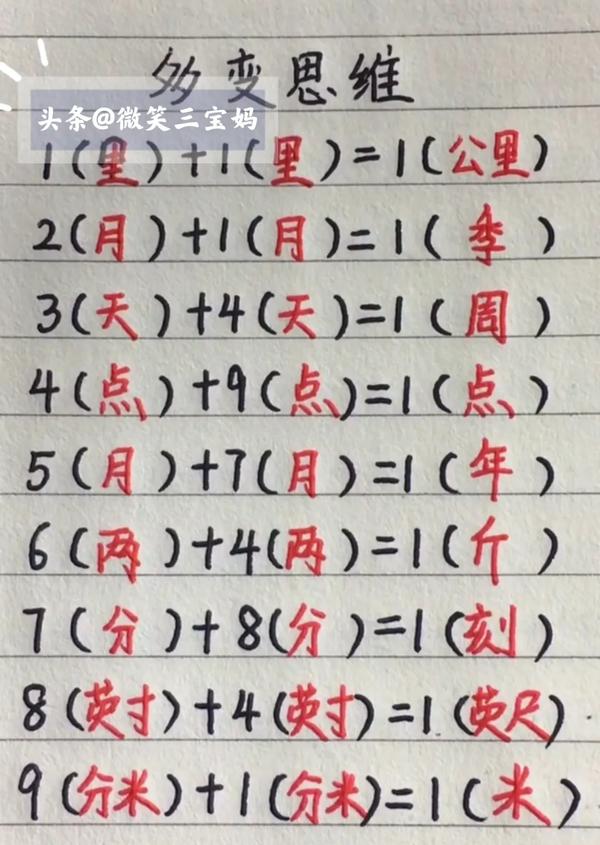 多变思维
头条@微笑三宝妈
1(里)+1(里)=1(公里)
2(月)+1(月)=1(季)
3(天)+4(天)=1(周)
4(点)+9(点)=1(点)
5(月)+7(月)=1(年)
6(两)+4(两)=1(斤)
7(分)+8(分)=1(刻)
8(英寸)+4(英寸)=1(英尺)
9(分米)+1(分米)=1(米)